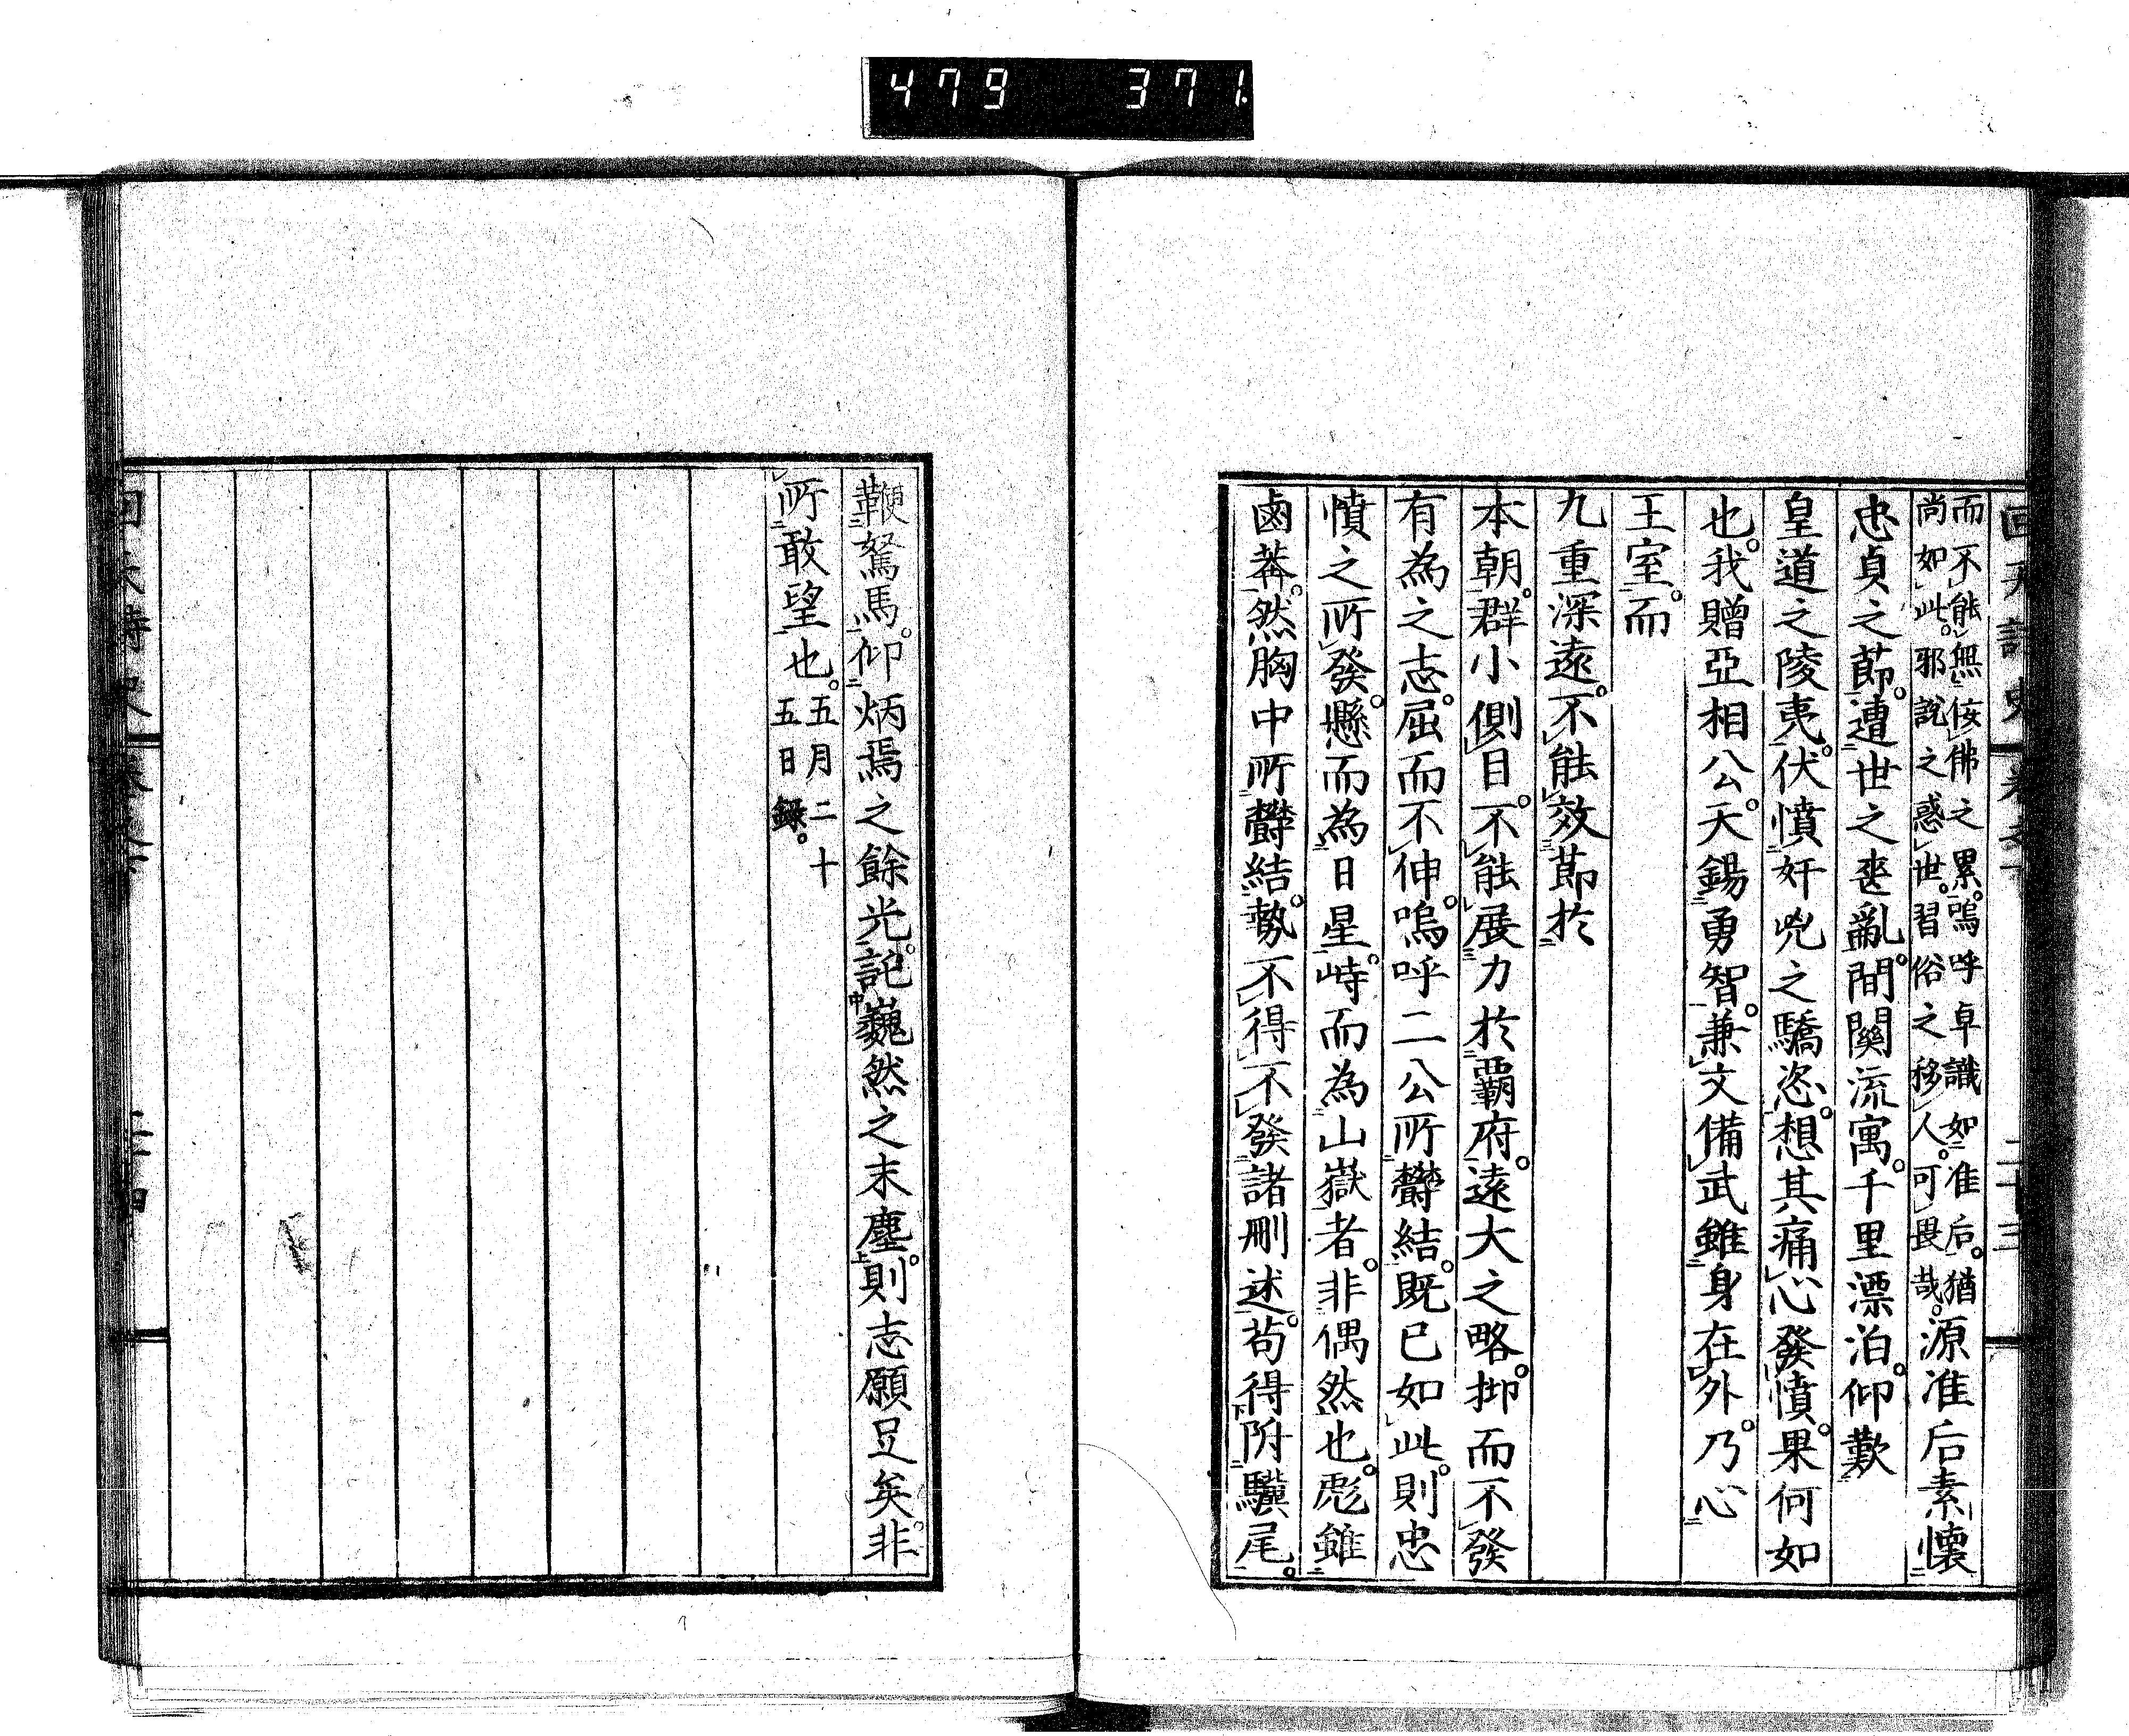 479 371
回天詩史 卷之下 二十三
而不能無佞佛之累。嗚呼卓識如准后。猶
尚如此。邪說之惑世。習俗之移人。可畏哉。源准后素懷
忠貞之節。遭世之喪亂。間關流寓。千里漂泊。仰歎
皇道之陵夷。伏憤奸兇之驕恣。想其痛心發憤。果何如
也。我贈亞相公。天錫勇智。兼文備武雖身在外。乃心
王室。而
九重深遠。不能效節於
本朝。群小側目。不能展力於覇府。遠大之略。抑而不發
有為之志。屈而不伸。嗚呼二公所欝結。既已如此。則忠
憤之所發。懸而為日星。峙而為山嶽者。非偶然也。彪雖
鹵莽。然胸中所欝結。勢不得不發諸刪述。苟得附驥尾。
鞭駑馬。仰炳焉之餘光。託巍然之末塵。則志願足矣。非
所敢望也。五月二十
五日錄。
回天詩史 卷之下 二十四